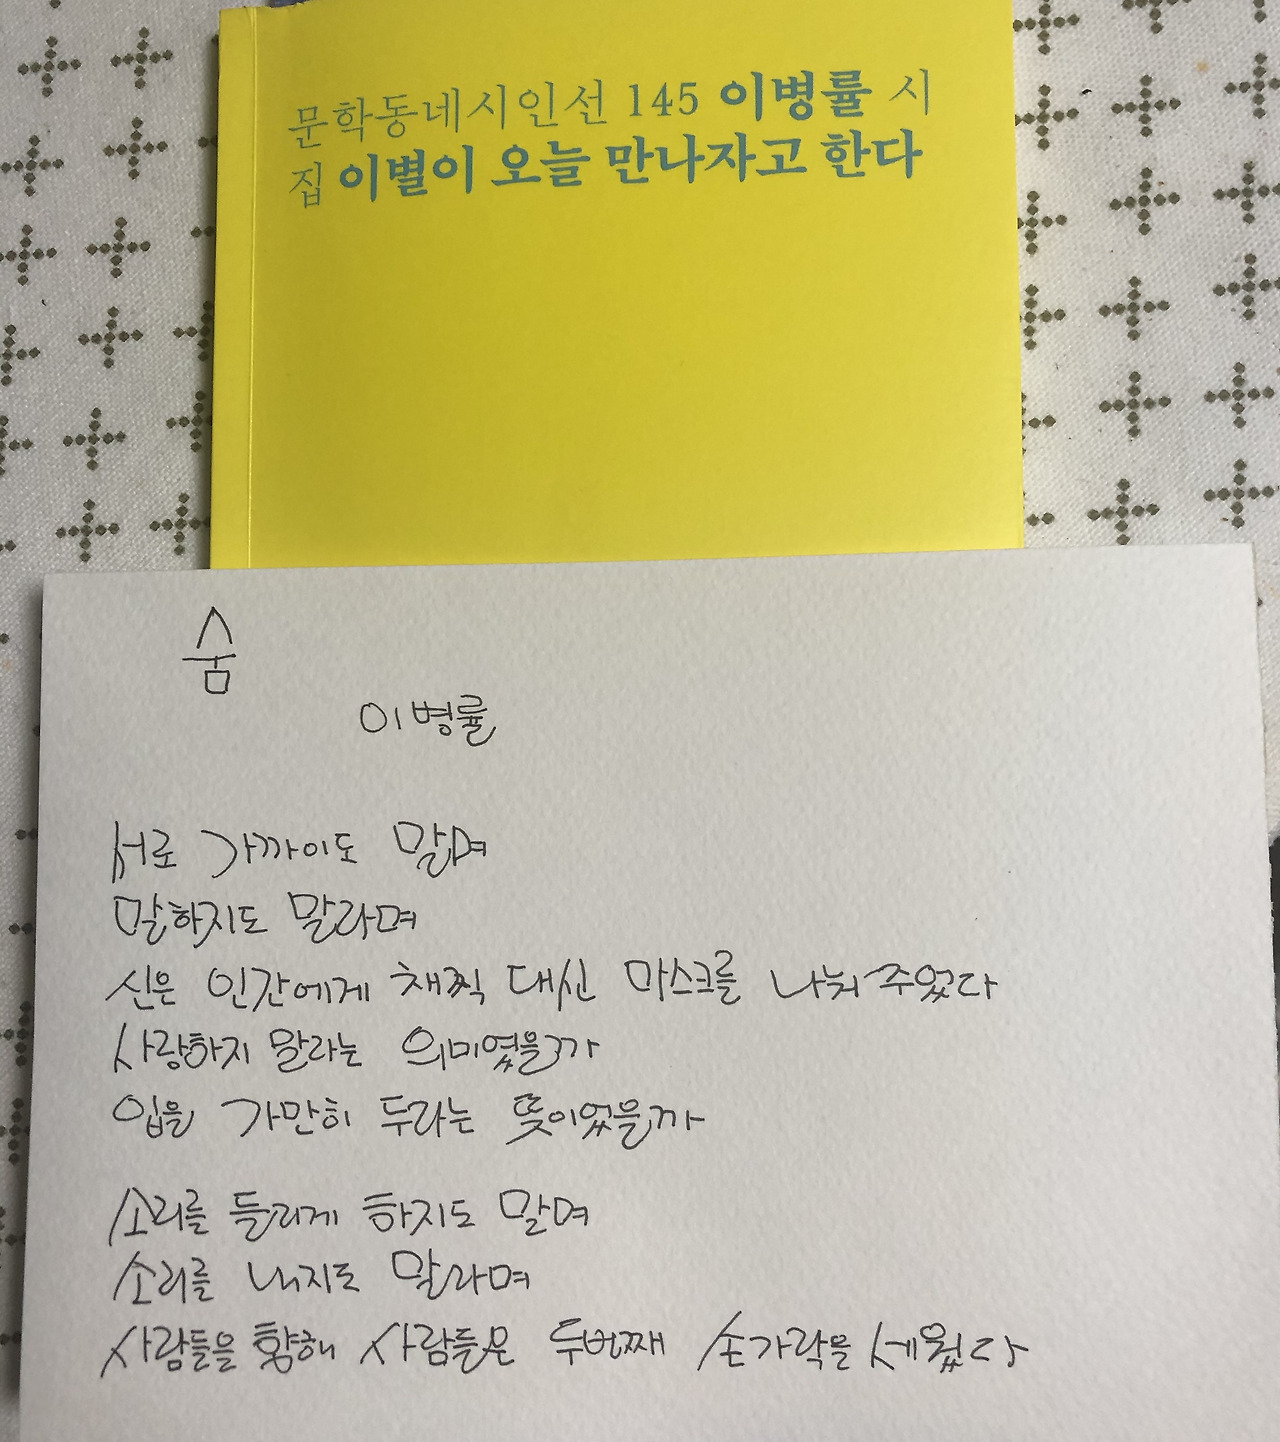 문학동네시인선 145 이병률 시
집 이별이 오늘 만나자고 한다
숨
이병률
서로 가까이도 말며
말하지도 말라며
신은 인간에게 채찍 대신 마스크를 나눠 주었다
사랑하지 말라는 의미였을까
입을 가만히 두라는 뜻이었을까
소리를 들리게 하지도 말며
소리를 내지도 말라며
사람들을 향해 사람들은 두번째 손가락을 세웠다